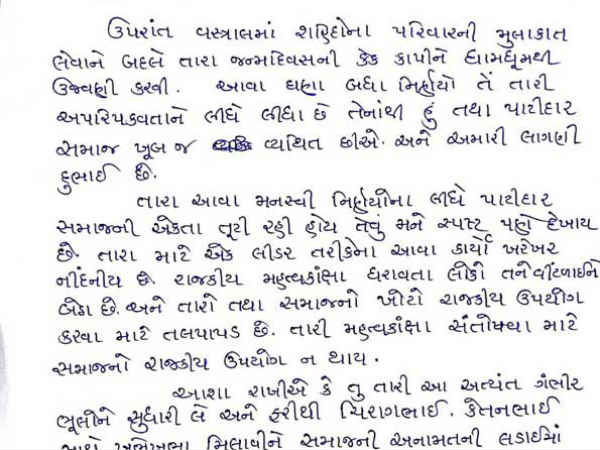 ઉપરાંત વસ્ત્રાલમાં શહિદોના પરિવારની મુલાકાત
લેવાને બદલે તારા જન્મદિવસની કેક કાપીને ધામધૂમથી
ઉજવણી કરવી. આવા ઘણા બધા નિર્ણયો તેં તારી
અપરિપકવતાને લીધે લીધા છે તેનાંથી હું તથા પાટીદાર
સમાજ ખૂબ જ વ્યથિત છીએ. અને અમારી લાગણી
દુભાઈ છે.
તારા આવા મનસ્વી નિર્ણયોના લીધે પાટીદાર
સમાજની એકતા તૂટી રહી હોય તેવું મને સ્પષ્ટ પણે દેખાય
છે. તારા માટે એક લીડર તરીકેના આવા કાર્યો ખરેખર
નીંદનીય છે. રાજકીય મહત્વકાંક્ષા ધરાવતા લોકો તને વીંટળાઈને
બેઠા છે. અને તારો તથા સમાજનો ખોટો રાજકીય ઉપયોગ
કરવા માટે તલપાપડ છે. તારી મહત્વકાંક્ષા સંતોષવા માટે
સમાજનો રાજકીય ઉપયોગ ન થાય.
આશા રાખીએ કે તુ તારી આ અત્યંત ગંભીર
ભૂલોને સુધારી લે અને ફરીથી ચિરાગભાઈ. કેતનભાઈ
સાથે ખભેખભા મિલાવીને સમાજની અનામતની લડાઈમાં